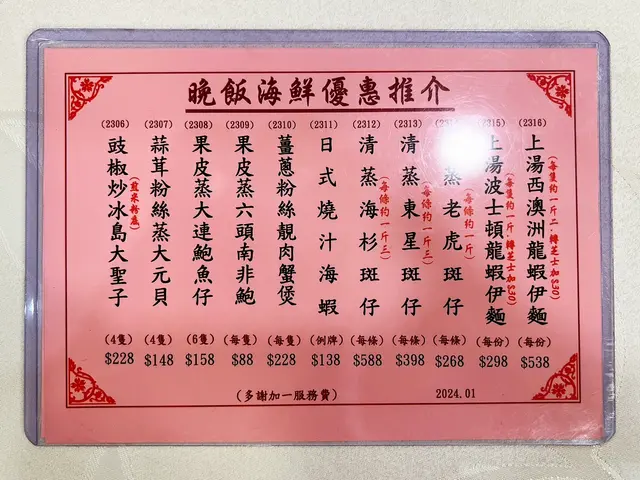 晚飯海鮮優惠推介
(2316)
上湯西澳洲龍蝦伊麵
(每隻約一斤二，轉芝士加$30)
(每份)
$538
2315)
上湯波士頓龍蝦伊麵
(每隻約一斤，轉芝士加$30)
(每份)
$298
蒸老虎斑仔
(每條約一斤)
(每條)
$268
(2313)
清蒸東星斑仔
(每條約一斤三)
(每條)
$398
(2312)
清蒸海杉斑仔
(每條約一斤三)
(每條)
$588
(2311)
日式燒汁海蝦
(例牌)
$138
(2310)
薑蔥粉絲靚肉蟹煲
(每隻)
$228
(2309)
果皮蒸六頭南非鮑
(每隻)
$88
(2308)
果皮蒸大連鮑魚仔
(6隻)
$158
(2307)
蒜茸粉絲蒸大元貝
(4隻)
$148
(2306)
豉椒炒冰島大聖子
(煎米粉底)
(4隻)
$228
(多謝加一服務費)
2024.01